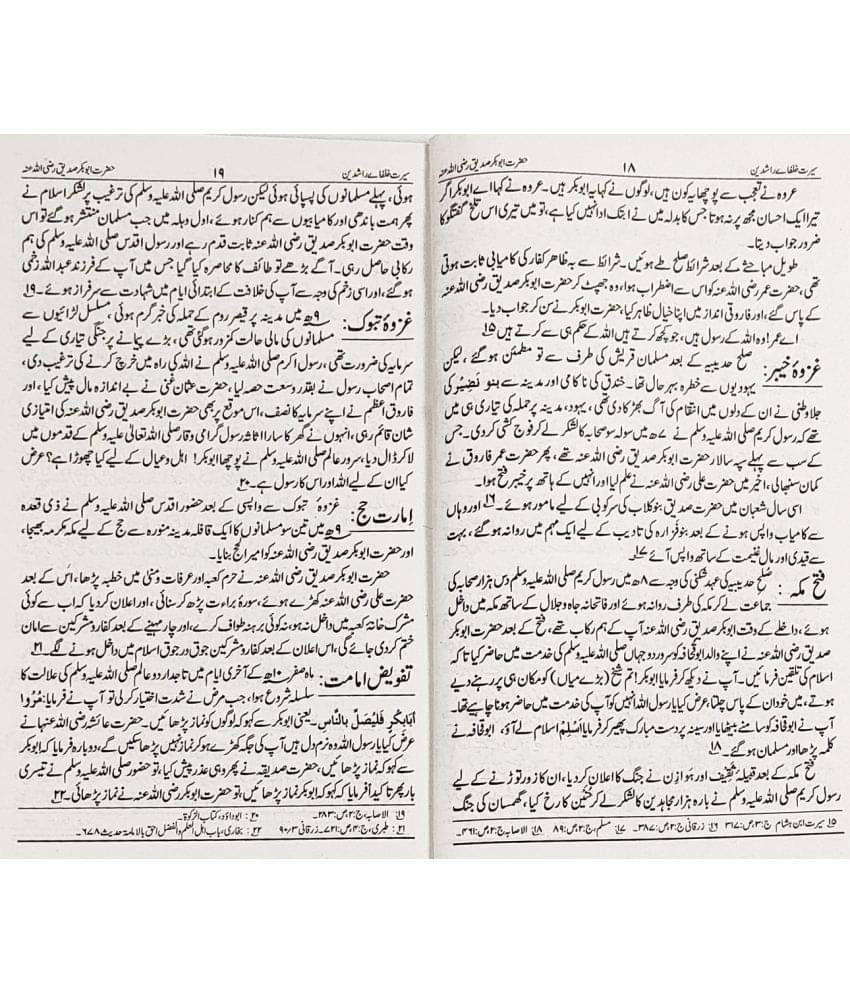 سیرت خلفاے راشدین ۱۸ حضرت ابوبکر صدیق رضی اللہ عنہ
عروہ نے تعجب سے پوچھا یہ کون ہیں، لوگوں نے کہا یہ ابوبکر ہیں۔ عروہ نے کہا اے ابوبکر اگر
تیرا ایک احسان مجھ پر نہ ہوتا جس کا بدلہ میں نے ابتک ادا نہیں کیا ہے، تو میں تیری اس تلخ گفتگو کا
ضرور جواب دیتا۔
طویل مباحثے کے بعد شرائط صلح طے ہوئیں۔ شرائط سے بہ ظاہر کفار کی کامیابی ثابت ہوتی
تھی، حضرت عمر رضی اللہ عنہ کو اس سے اضطراب ہوا، وہ جھپٹ کر حضرت ابوبکر صدیق رضی اللہ عنہ
کے پاس گئے، اور فاروقی انداز میں اپنا خیال ظاہر کیا، حضرت ابوبکر نے سن کر جواب دیا۔
اے عمر! وہ اللہ کے رسول ہیں، جو کچھ کرتے ہیں اللہ کے حکم ہی سے کرتے ہیں ۱۵
غزوۂ خیبر: صلح حدیبیہ کے بعد مسلمان قریش کی طرف سے تو مطمئن ہو گئے، لیکن
یہودیوں سے خطرہ بہر حال تھا۔ خندق کی ناکامی اور مدینہ سے بنو نضیر کی
جلا وطنی نے ان کے دلوں میں انتقام کی آگ بھڑکا دی تھی، یہود، مدینہ پر حملہ کی تیاری ہی میں
تھے کہ رسول کریم صلی اللہ علیہ وسلم نے ۷ھ میں سولہ سو صحابہ کا لشکر لے کر فوج کشی کر دی۔ جس
کے سب سے پہلے سپہ سالار حضرت ابوبکر صدیق رضی اللہ عنہ تھے، پھر حضرت عمر فاروق نے
کمان سنبھالی، اخیر میں حضرت علی رضی اللہ عنہ نے علم لیا اور انہیں کے ہاتھ پر خیبر فتح ہوا۔
اسی سال شعبان میں حضرت صدیق بنو کلاب کی سرکوبی کے لیے مامور ہوئے۔ ۱۶ اور وہاں
سے کامیاب واپس ہونے کے بعد بنو فزارہ کی تادیب کے لیے ایک مہم میں روانہ ہو گئے، بہت
سے قیدی اور مال غنیمت کے ساتھ واپس آئے ۱۷
فتح مکہ: صلح حدیبیہ کی عہد شکنی کی وجہ سے ۸ھ میں رسول کریم صلی اللہ علیہ وسلم دس ہزار صحابہ کی
جماعت لے کر مکہ کی طرف روانہ ہوئے اور فاتحانہ جاہ و جلال کے ساتھ مکہ میں داخل
ہوئے، داخلے کے وقت ابوبکر صدیق رضی اللہ عنہ آپ کے ہم رکاب تھے، فتح کے بعد حضرت ابوبکر
صدیق رضی اللہ عنہ نے اپنے والد ابوقحافہ کو سرور دوجہاں صلی اللہ علیہ وسلم کی خدمت میں حاضر کیا تاکہ
اسلام کی تلقین فرمائیں۔ آپ نے دیکھ کر فرمایا ابوبکر! تم شیخ (بڑے میاں) کو مکان ہی پر رہنے دیے
ہوتے، میں خود ان کے پاس چلتا، عرض کیا یا رسول اللہ انہیں کو آپ کی خدمت میں حاضر ہونا چاہیے تھا۔
آپ نے ابوقحافہ کو سامنے بیٹھایا اور سینہ پر دست مبارک پھیر کر فرمایا اَسْلِمْ اسلام لے آؤ، ابوقحافہ نے
کلمہ پڑھا اور مسلمان ہو گئے۔ ۱۸
فتح مکہ کے بعد قبیلہ ثقیف اور ہوازن نے جنگ کا اعلان کر دیا، ان کا زور توڑنے کے لیے
رسول کریم صلی اللہ علیہ وسلم نے بارہ ہزار مجاہدین کا لشکر لے کر حُنین کا رخ کیا، گھمسان کی جنگ
۱۵ سیرت ابن ہشام ج:۳،ص:۳۱۷ ۱۶ زرقانی ج:۲،ص:۳۸۷۔ ۱۷: مسلم، ج:۲،ص:۸۹ ۱۸: الاصابہ ج:۲،ص:۴۶۱۔
سیرت خلفاے راشدین ۱۹ حضرت ابوبکر صدیق رضی اللہ عنہ
ہوئی، پہلے مسلمانوں کی پسپائی ہوئی لیکن رسول کریم صلی اللہ علیہ وسلم کی ترغیب پر لشکر اسلام نے
پھر ہمت باندھی اور کامیابیوں سے ہم کنار ہوئے، اول وہلہ میں جب مسلمان منتشر ہو گئے تو اس
وقت حضرت ابوبکر صدیق رضی اللہ عنہ ثابت قدم رہے اور رسول اقدس صلی اللہ علیہ وسلم کی ہم
رکابی حاصل رہی۔ آگے بڑھے تو طائف کا محاصرہ کیا گیا جس میں آپ کے فرزند عبداللہ زخمی
ہو گئے، اور اسی زخم کی وجہ سے آپ کی خلافت کے ابتدائی ایام میں شہادت سے سرفراز ہوئے۔ ۱۹
غزوۂ تبوک: ۹ھ میں مدینہ پر قیصر روم کے حملہ کی خبر گرم ہوئی، مسلسل لڑائیوں سے
مسلمانوں کی مالی حالت کمزور ہو گئی تھی، بڑے پیمانے پر جنگی تیاری کے لیے
سرمایہ کی ضرورت تھی، رسول اکرم صلی اللہ علیہ وسلم نے اللہ کی راہ میں خرچ کرنے کی ترغیب دی،
تمام اصحاب رسول نے بقدر وسعت حصہ لیا، حضرت عثمان غنی نے بے اندازہ مال پیش کیا، اور
فاروق اعظم نے اپنے سرمایہ کا نصف، اس موقع پر بھی حضرت ابوبکر صدیق رضی اللہ عنہ کی امتیازی
شان قائم رہی، انہوں نے گھر کا سارا اثاثہ رسول گرامی وقار صلی اللہ تعالیٰ علیہ وسلم کے قدموں میں
لا کر ڈال دیا، سرور عالم صلی اللہ علیہ وسلم نے پوچھا ابوبکر! اہل و عیال کے لیے کیا چھوڑا ہے؟ عرض
کیا ان کے لیے اللہ اور اس کا رسول ہے۔ ۲۰
اِمارت حج: غزوۂ تبوک سے واپسی کے بعد حضور اقدس صلی اللہ علیہ وسلم نے ذی قعدہ
۹ھ میں تین سو مسلمانوں کا ایک قافلہ مدینہ منورہ سے حج کے لیے مکہ مکرمہ بھیجا،
اور حضرت ابوبکر صدیق رضی اللہ عنہ کو امیر الحج بنایا۔
حضرت ابوبکر صدیق رضی اللہ عنہ نے حرم کعبہ اور عرفات و منیٰ میں خطبہ پڑھا، اس کے بعد
حضرت علی رضی اللہ عنہ کھڑے ہوئے، سورۂ براءت پڑھ کر سنائی، اور اعلان کر دیا کہ اب سے کوئی
مشرک خانۂ کعبہ میں داخل نہ ہو، نہ کوئی برہنہ طواف کرے، اور چار مہینے کے بعد کفار و مشرکین سے امان
ختم کر دی جائے گی، اس اعلان کے بعد کفار و مشرکین جوق در جوق اسلام میں داخل ہونے لگے۔ ۲۱
تفویض امامت: ماہ صفر ۱۰ھ کے آخری ایام میں تاجدار دوعالم صلی اللہ علیہ وسلم کی علالت کا
سلسلہ شروع ہوا، جب مرض نے شدت اختیار کر لی تو آپ نے فرمایا: مُرُوا
اَبَابَكْرٍ فَلْيُصَلِّ بِالنَّاسِ۔ یعنی ابوبکر سے کہو کہ لوگوں کو نماز پڑھائیں۔ حضرت عائشہ رضی اللہ عنہا نے
عرض کیا یا رسول اللہ وہ نرم دل ہیں آپ کی جگہ کھڑے ہو کر نماز نہیں پڑھا سکیں گے، دوبارہ فرمایا کہ ابوبکر
سے کہو کہ نماز پڑھائیں، حضرت صدیقہ نے پھر وہی عذر پیش کیا، تو حضور صلی اللہ علیہ وسلم نے تیسری
بار پھر تاکیداً فرمایا کہ کہو کہ ابوبکر نماز پڑھائیں، تو حضرت ابوبکر رضی اللہ عنہ نے نماز پڑھائی۔ ۲۲
۱۹: الاصابہ، ج:۲،ص:۲۸۳۔ ۲۰: ابوداؤد، کتاب الزکوٰۃ۔
۲۱: طبری، ج:۴،ص:۷۲۱۔ زرقانی ۹۰/۳ ۲۲: بخاری، باب اہل العلم والفضل احق بالامامۃ حدیث ۶۷۸